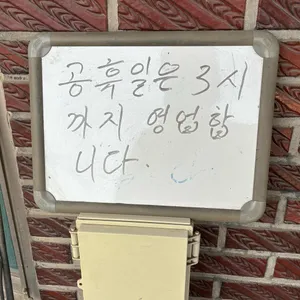 공휴일은 3시
까지 영업합
니다.